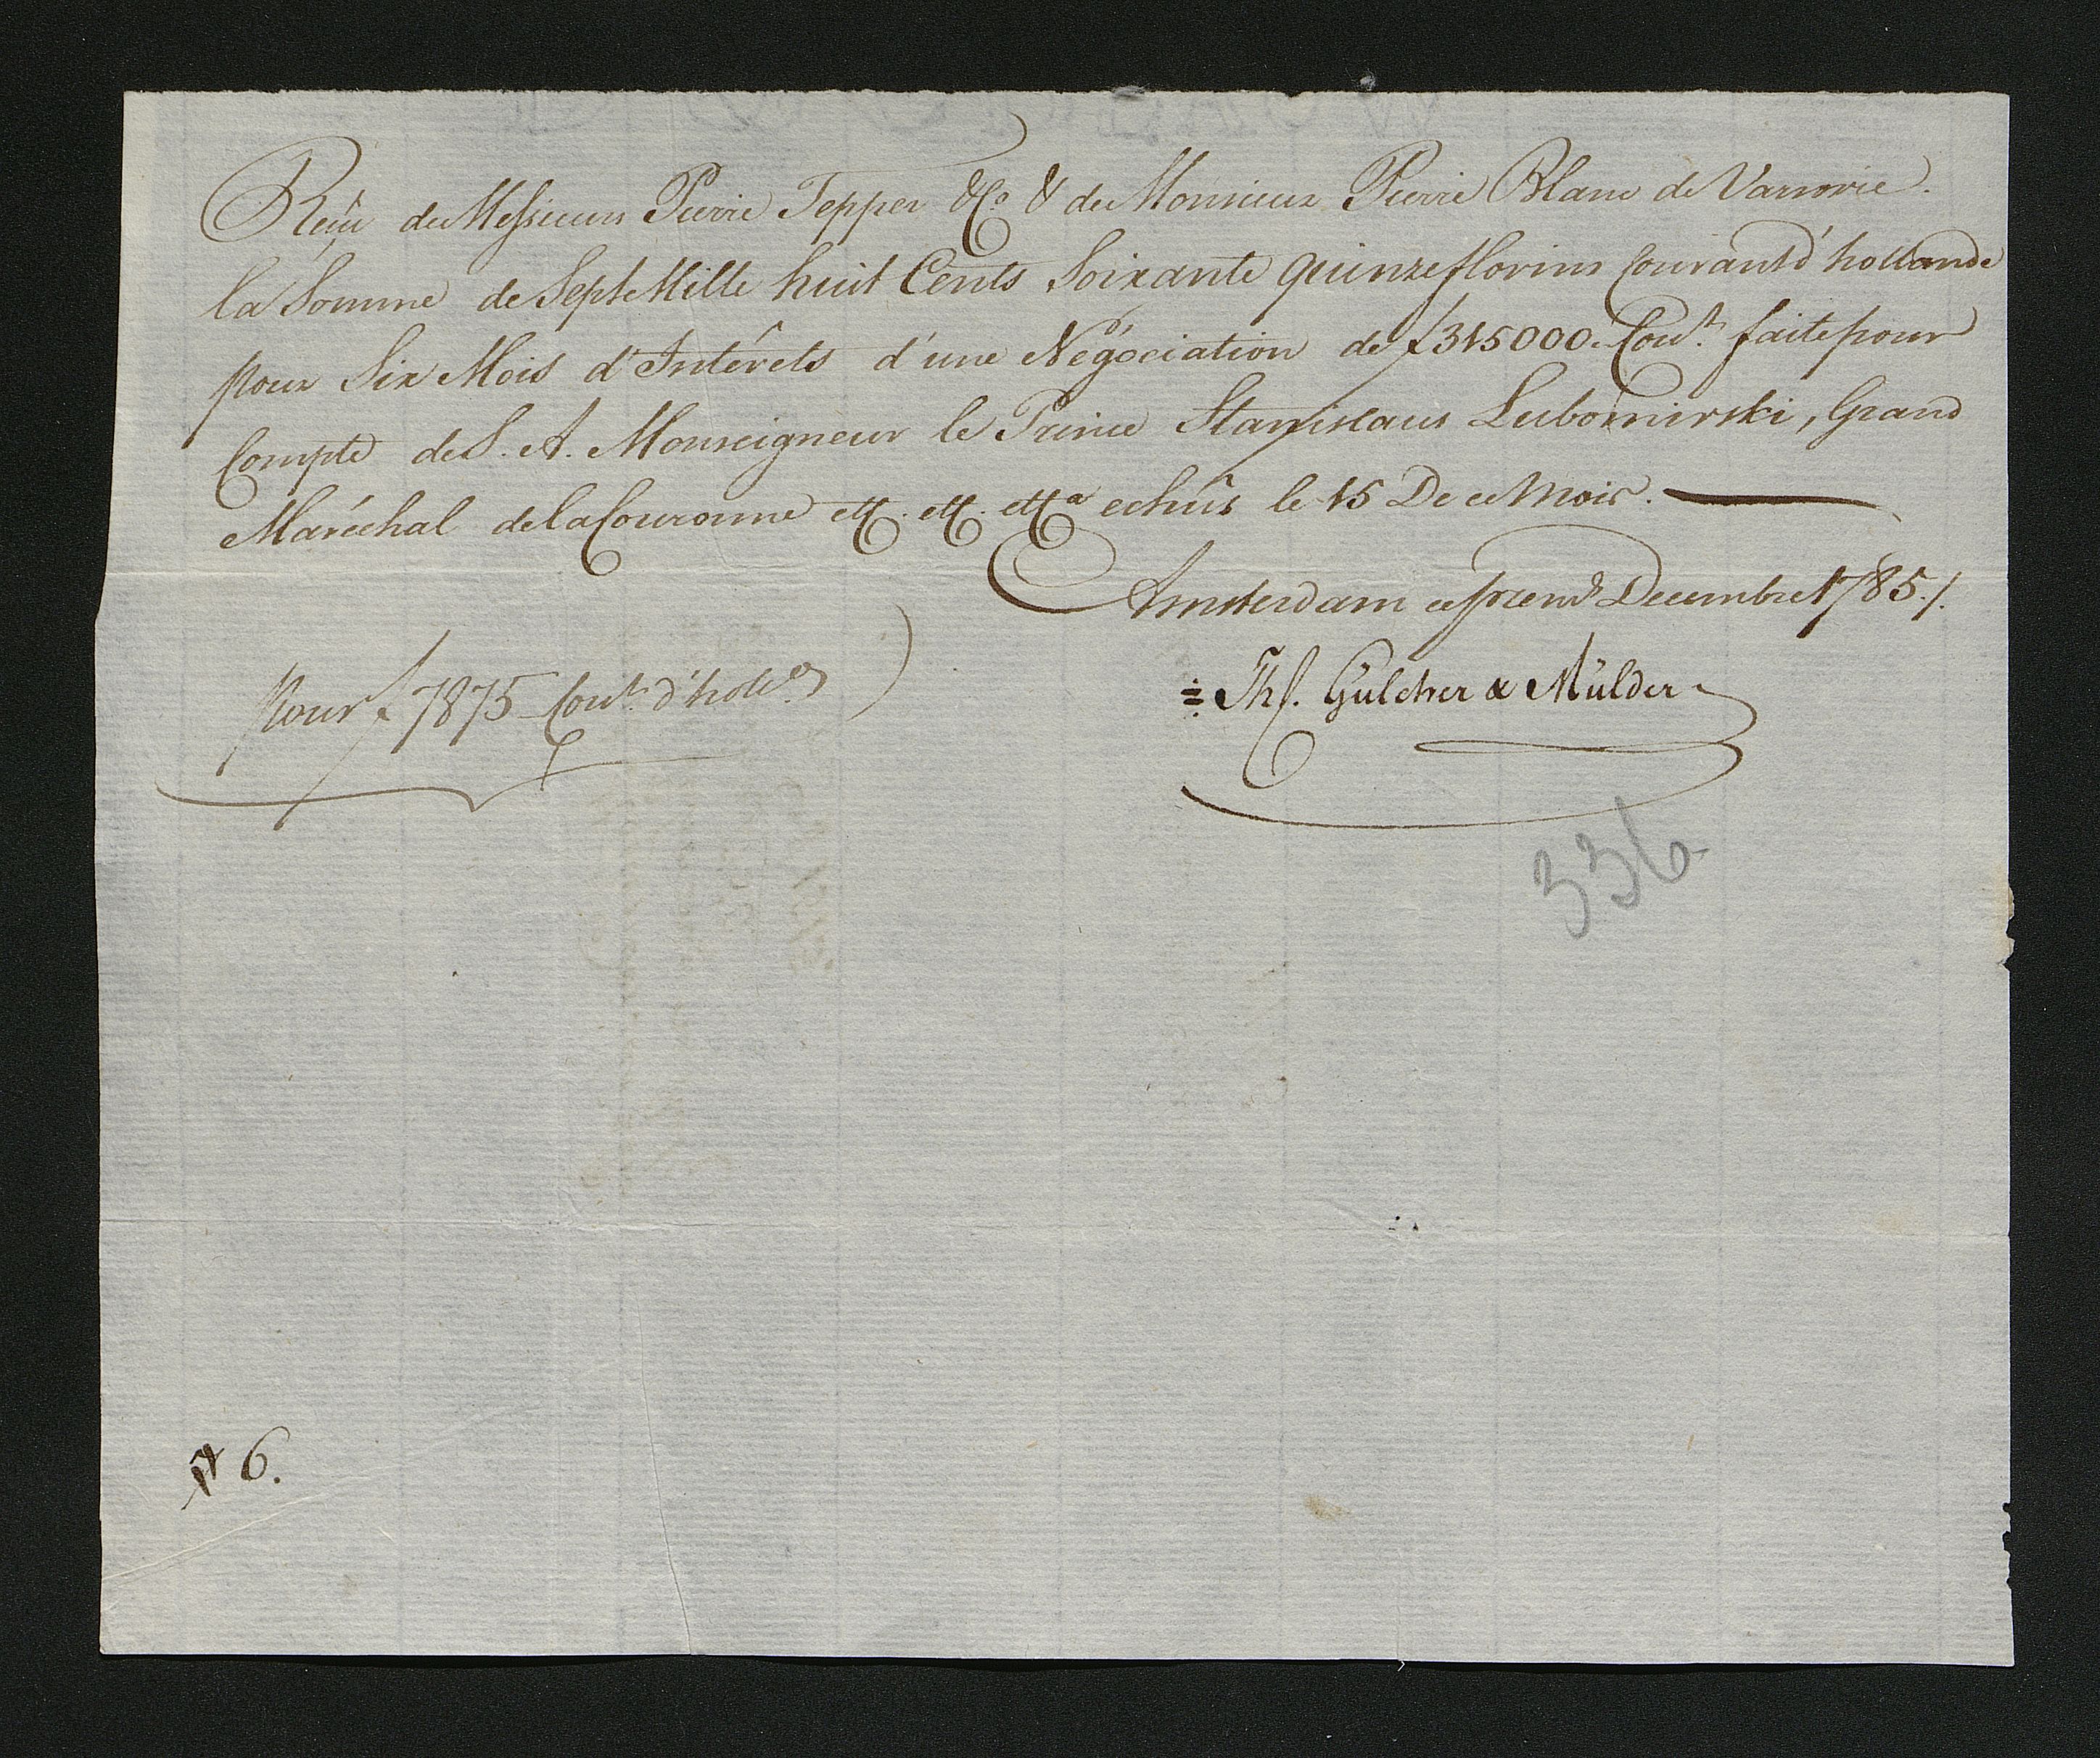 Reçu de Messieurs Pierre Tepper & Co & de Monsieur Pierre Blanc de Varsovie.
la Somme de Sept Mille huit Cents Soixante quinze florins Courant d'hollande
pour Six Mois d'Intérêts d'une Négociation de ƒ 315000. Cour.t faite pour
Compte de S. A. Monseigneur le Prince Stanislaus Lubomirski, Grand
Maréchal de la Couronne ett. ett. etta echûs le 15 De ce Mois.
Amsterdam ce prem.r Decembre 1785./.
pour ƒ 7875 Cour.t d'holl.e
Th. Gülcher & Mülder
336
6.